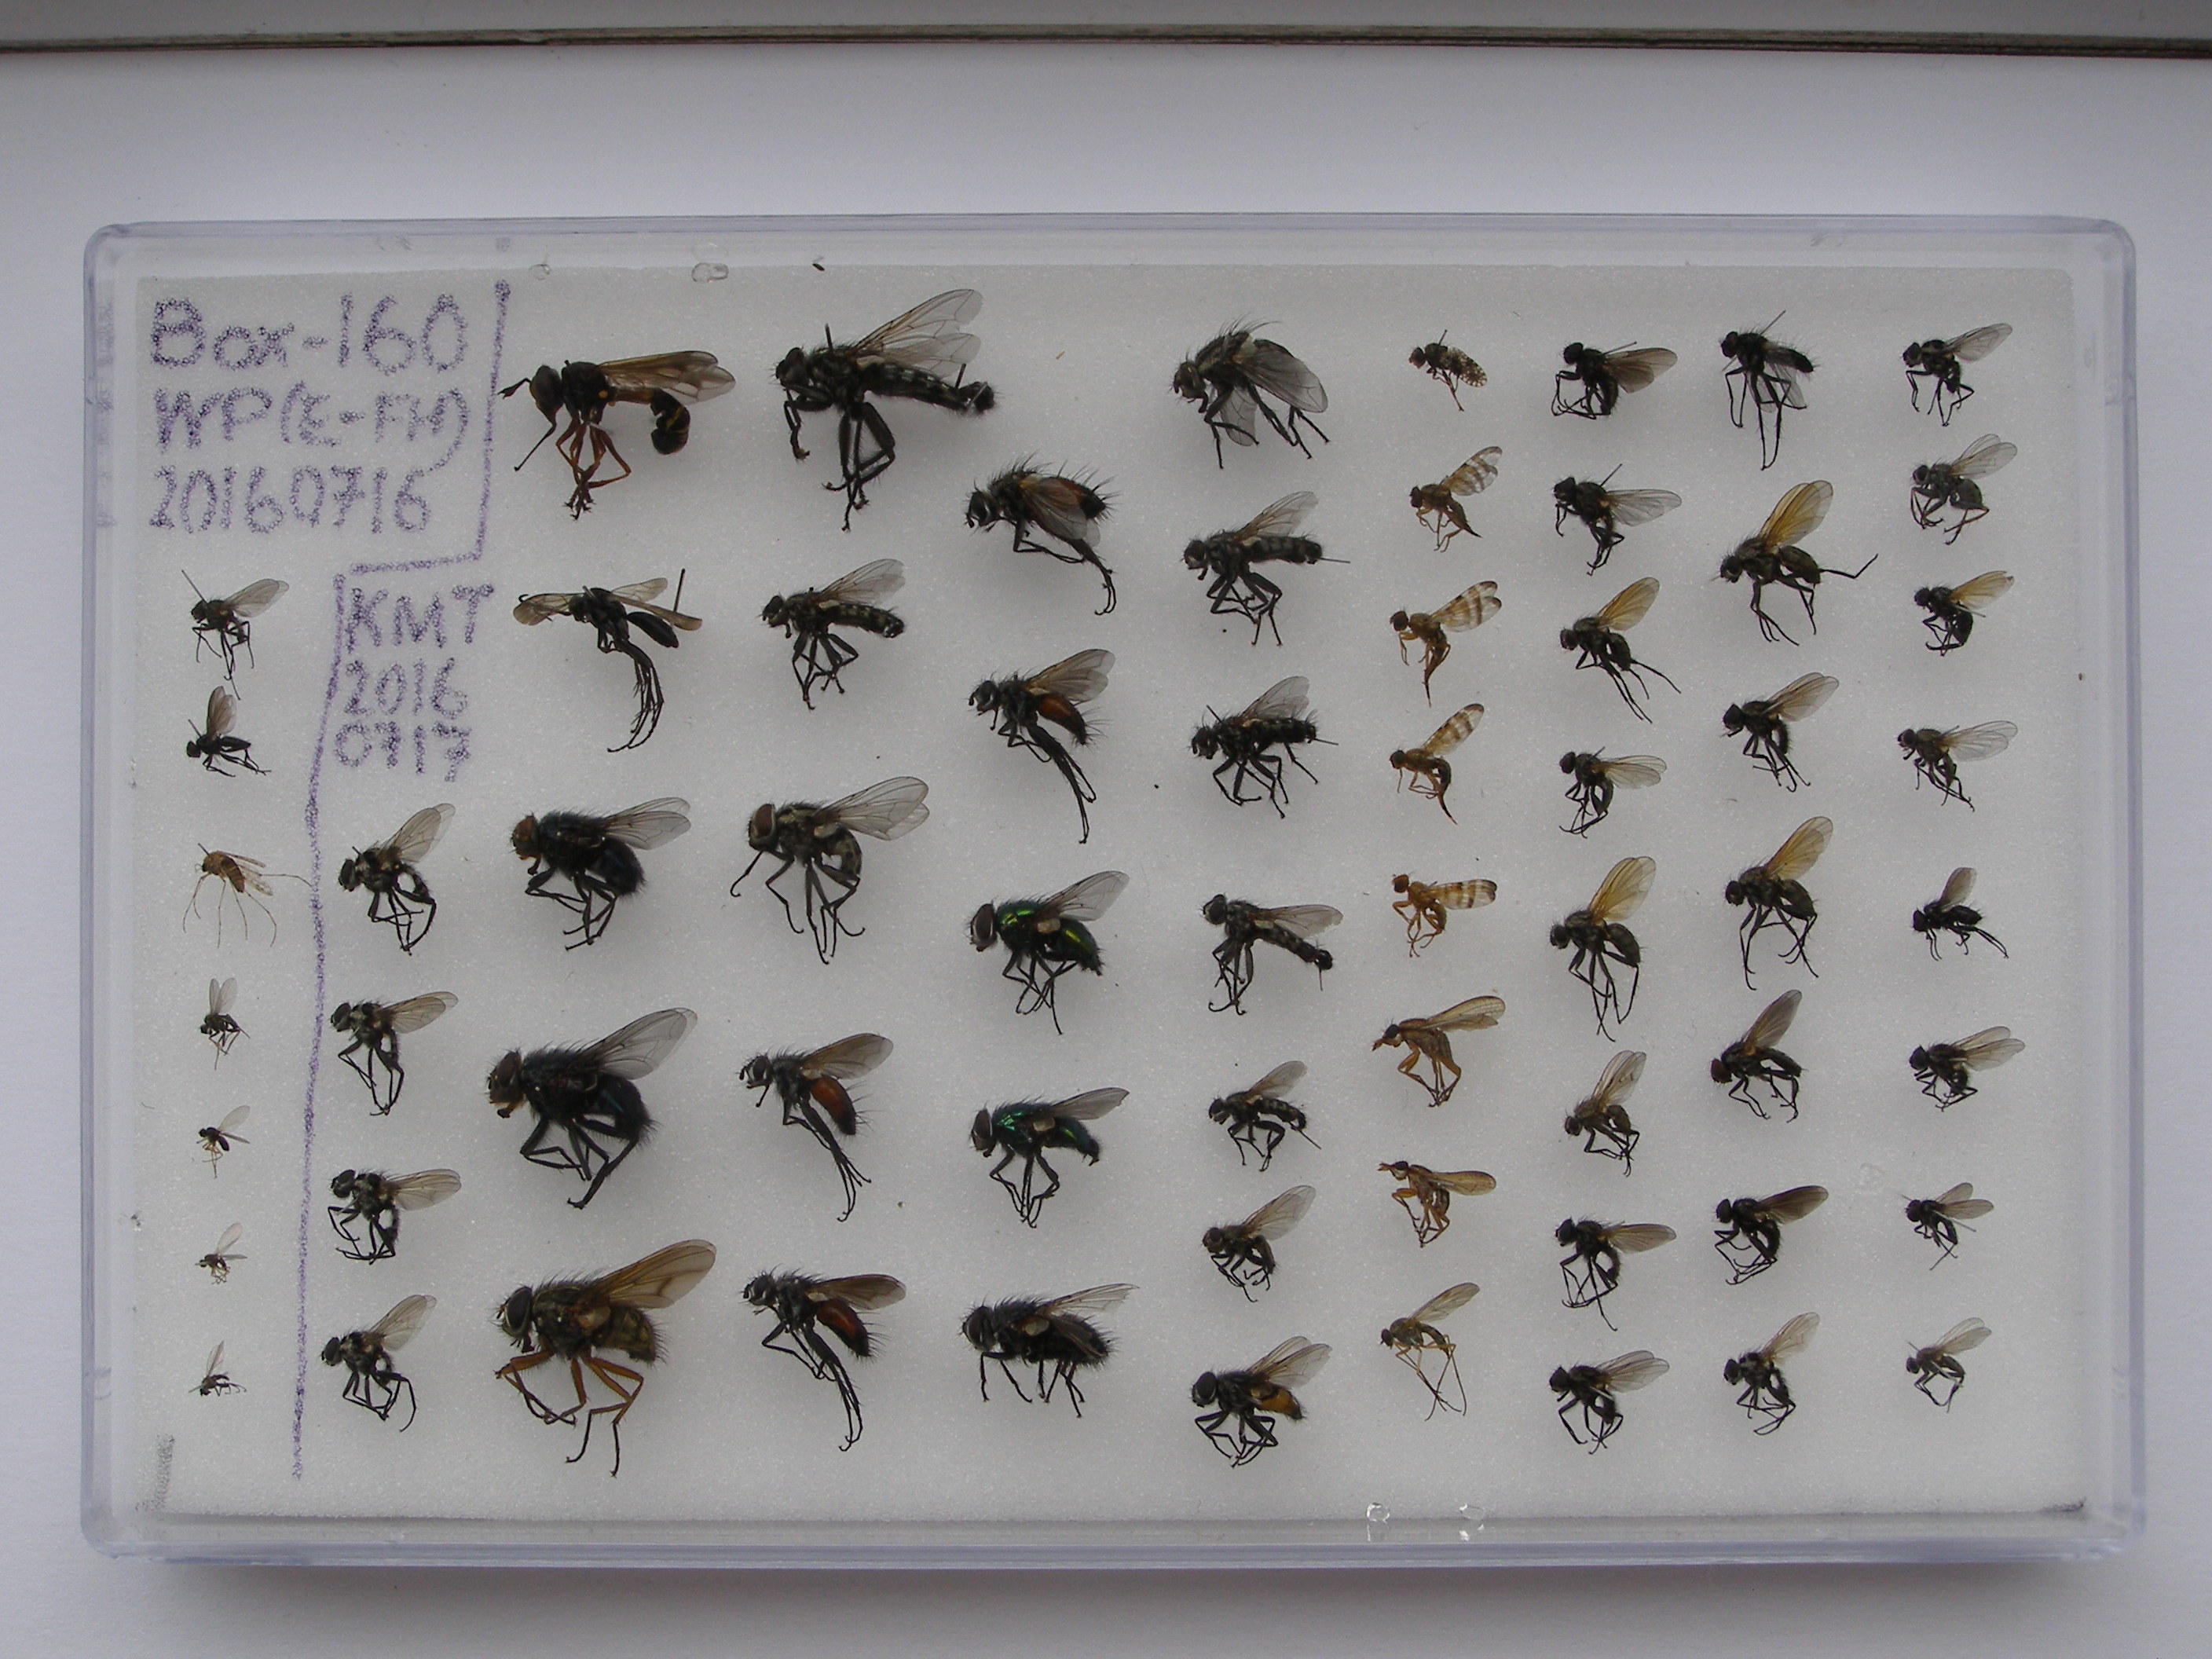 Box-160
WP(E-FH)
20160716
KMT
2016
0717